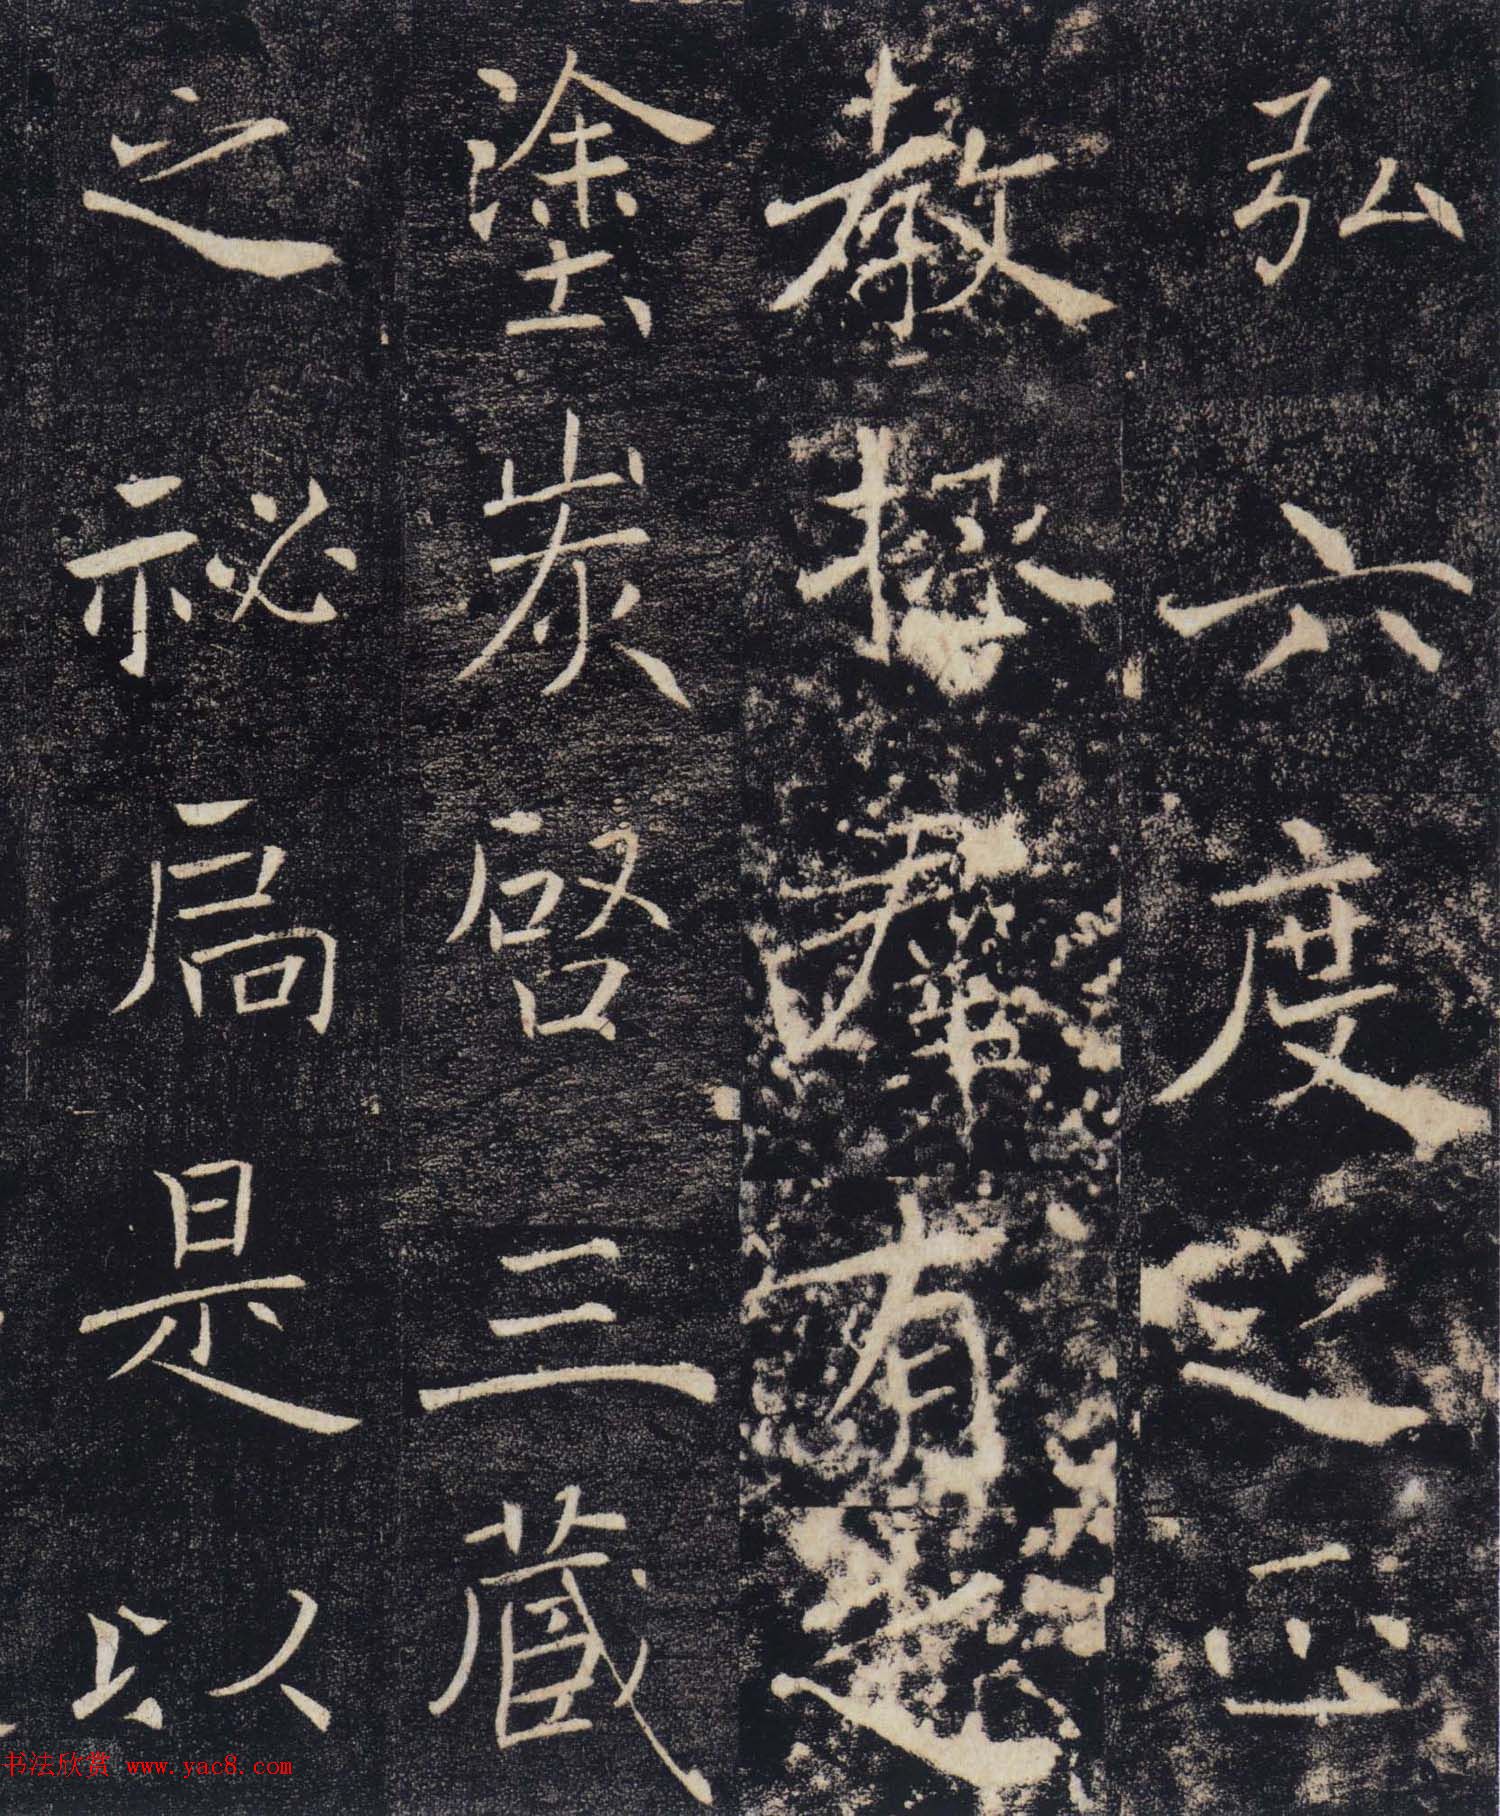 弘六度之正
教拯羣有之
塗炭啓三藏
之祕扃是以
书法欣赏 www.yac8.com